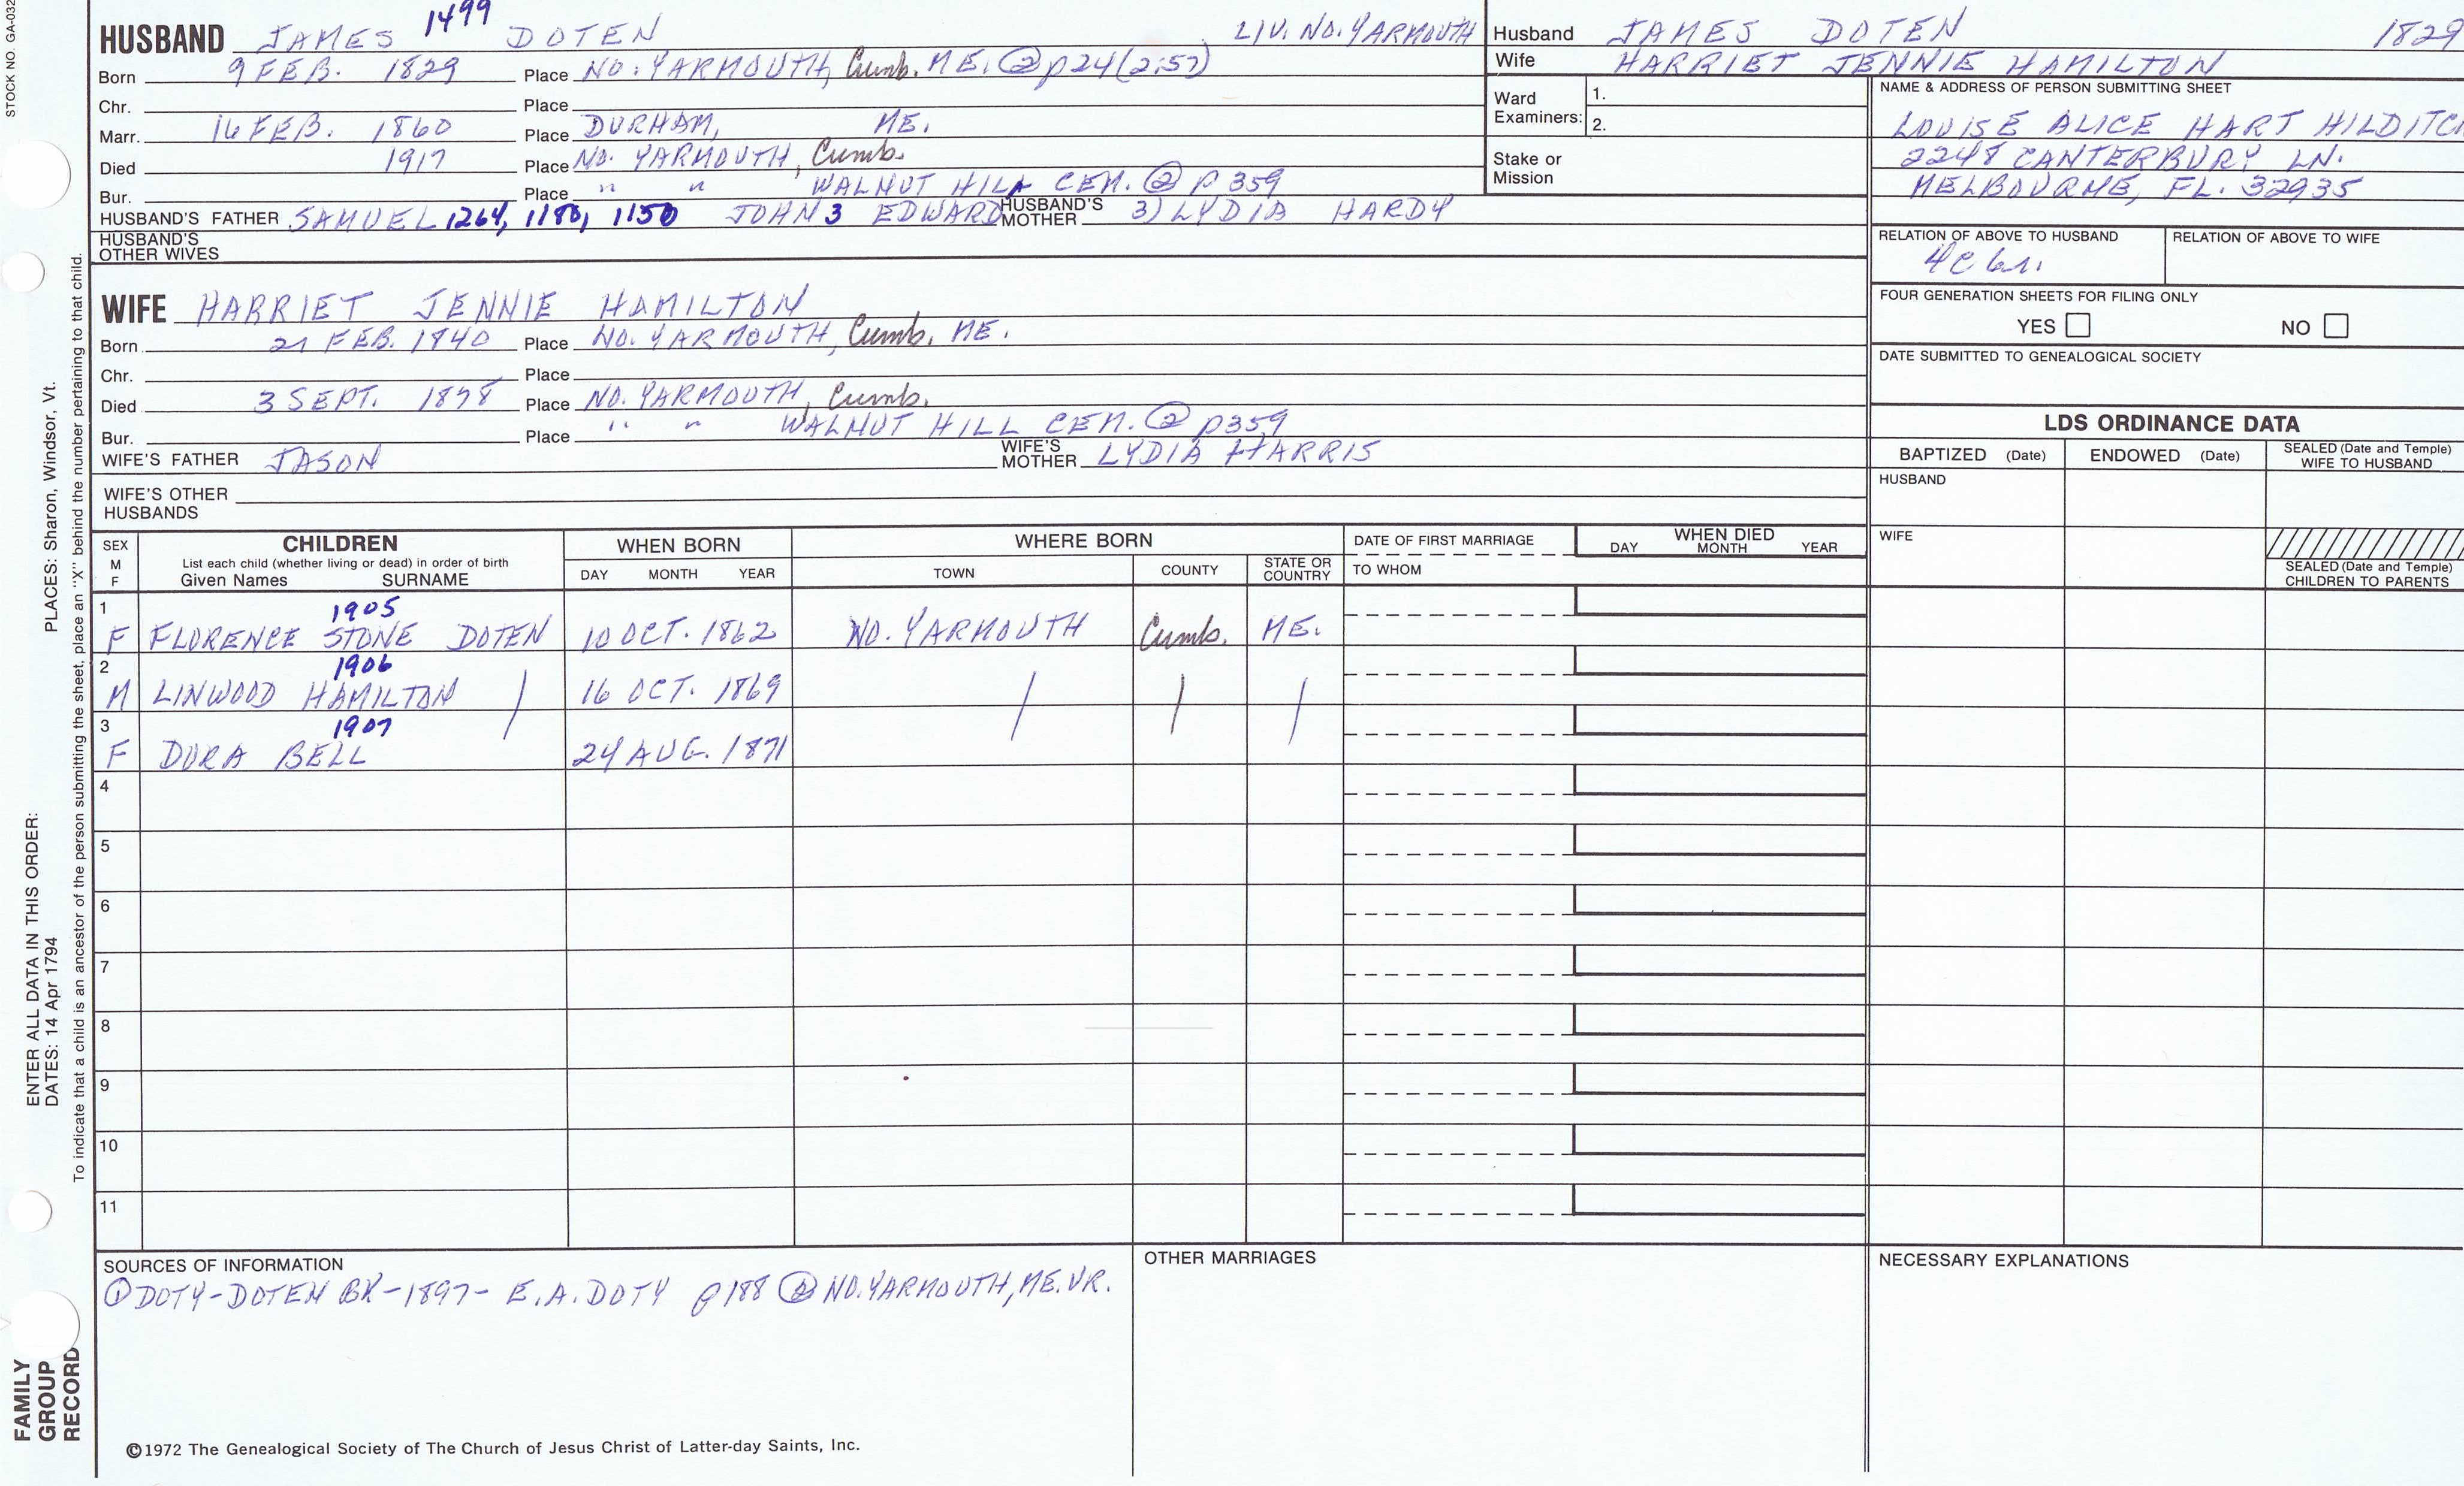 STOCK NO. GA-032
HUSBAND JAMES 1499 DOTEN LIV. NO. YARMOUTH
Born 9 FEB. 1829 Place NO. YARMOUTH, Cumb. ME. ② p24 (2:57)
Chr. Place
Marr. 16 FEB. 1860 Place DURHAM, ME.
Died 1917 Place NO. YARMOUTH, Cumb.
Bur. Place " " WALNUT HILL CEM. ② p 359
HUSBAND'S FATHER SAMUEL 1264, 1180, 1150 JOHN 3 EDWARD HUSBAND'S MOTHER 3) LYDIA HARDY
HUSBAND'S OTHER WIVES
WIFE HARRIET JENNIE HAMILTON
Born 21 FEB. 1840 Place NO. YARMOUTH, Cumb. ME.
Chr. Place
Died 3 SEPT. 1898 Place NO. YARMOUTH, Cumb.
Bur. Place " " WALNUT HILL CEM. ② p359
WIFE'S FATHER JASON WIFE'S MOTHER LYDIA HARRIS
WIFE'S OTHER HUSBANDS
Husband JAMES DOTEN 1829
Wife HARRIET JENNIE HAMILTON
Ward Examiners: 1.
2.
Stake or Mission
NAME & ADDRESS OF PERSON SUBMITTING SHEET
LOUISE ALICE HART HILDITCH
2248 CANTERBURY LN.
MELBOURNE, FL. 32935
RELATION OF ABOVE TO HUSBAND RELATION OF ABOVE TO WIFE
FOUR GENERATION SHEETS FOR FILING ONLY
YES NO
DATE SUBMITTED TO GENEALOGICAL SOCIETY
LDS ORDINANCE DATA
BAPTIZED (Date) ENDOWED (Date) SEALED (Date and Temple) WIFE TO HUSBAND
HUSBAND
WIFE
SEALED (Date and Temple) CHILDREN TO PARENTS
SEX M F CHILDREN WHEN BORN WHERE BORN DATE OF FIRST MARRIAGE WHEN DIED
List each child (whether living or dead) in order of birth
Given Names SURNAME DAY MONTH YEAR TOWN COUNTY STATE OR COUNTRY TO WHOM DAY MONTH YEAR
1 1905
F FLORENCE STONE DOTEN 10 OCT. 1862 NO. YARMOUTH Cumb. ME.
2 1906
M LINWOOD HAMILTON / 16 OCT. 1869 / / /
3 1907
F DORA BELL 24 AUG. 1871
4
5
6
7
8
9
10
11
SOURCES OF INFORMATION
① DOTY-DOTEN BK-1897- E.A. DOTY p188 ② NO. YARMOUTH, ME. VR.
OTHER MARRIAGES
NECESSARY EXPLANATIONS
©1972 The Genealogical Society of The Church of Jesus Christ of Latter-day Saints, Inc.
FAMILY GROUP RECORD
ENTER ALL DATA IN THIS ORDER:
DATES: 14 Apr 1794 PLACES: Sharon, Windsor, Vt.
To indicate that a child is an ancestor of the person submitting the sheet, place an "X" behind the number pertaining to that child.